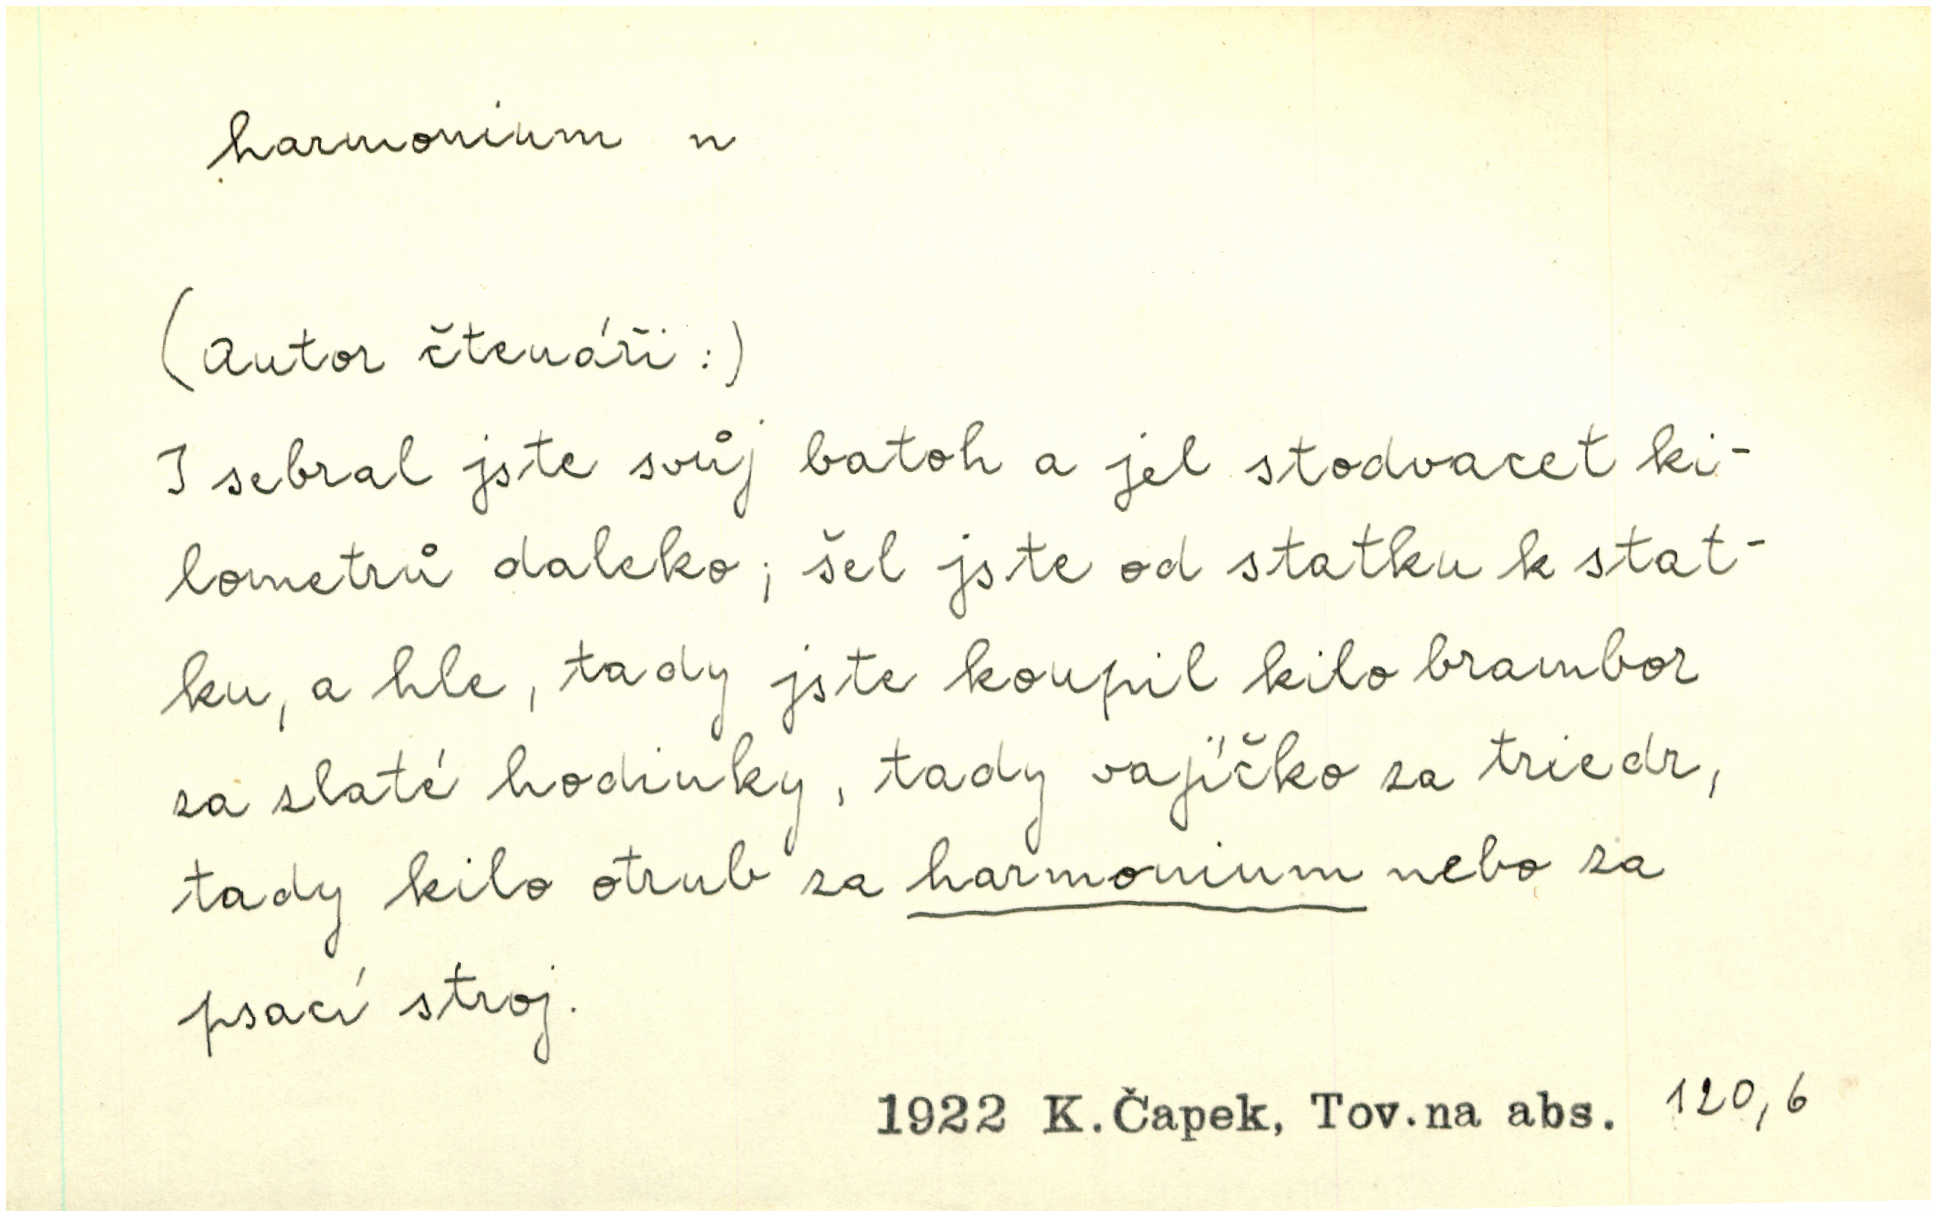 harmonium n
(Autor čtenáři:)
I sebral jste svůj batoh a jel stodvacet ki-
lometrů daleko; šel jste od statku k stat-
ku, a hle, tady jste koupil kilo brambor
za zlaté hodinky, tady vajíčko za triedr,
tady kilo otrub za harmonium nebo za
psací stroj.
1922 K. Čapek, Tov. na abs. 120,6